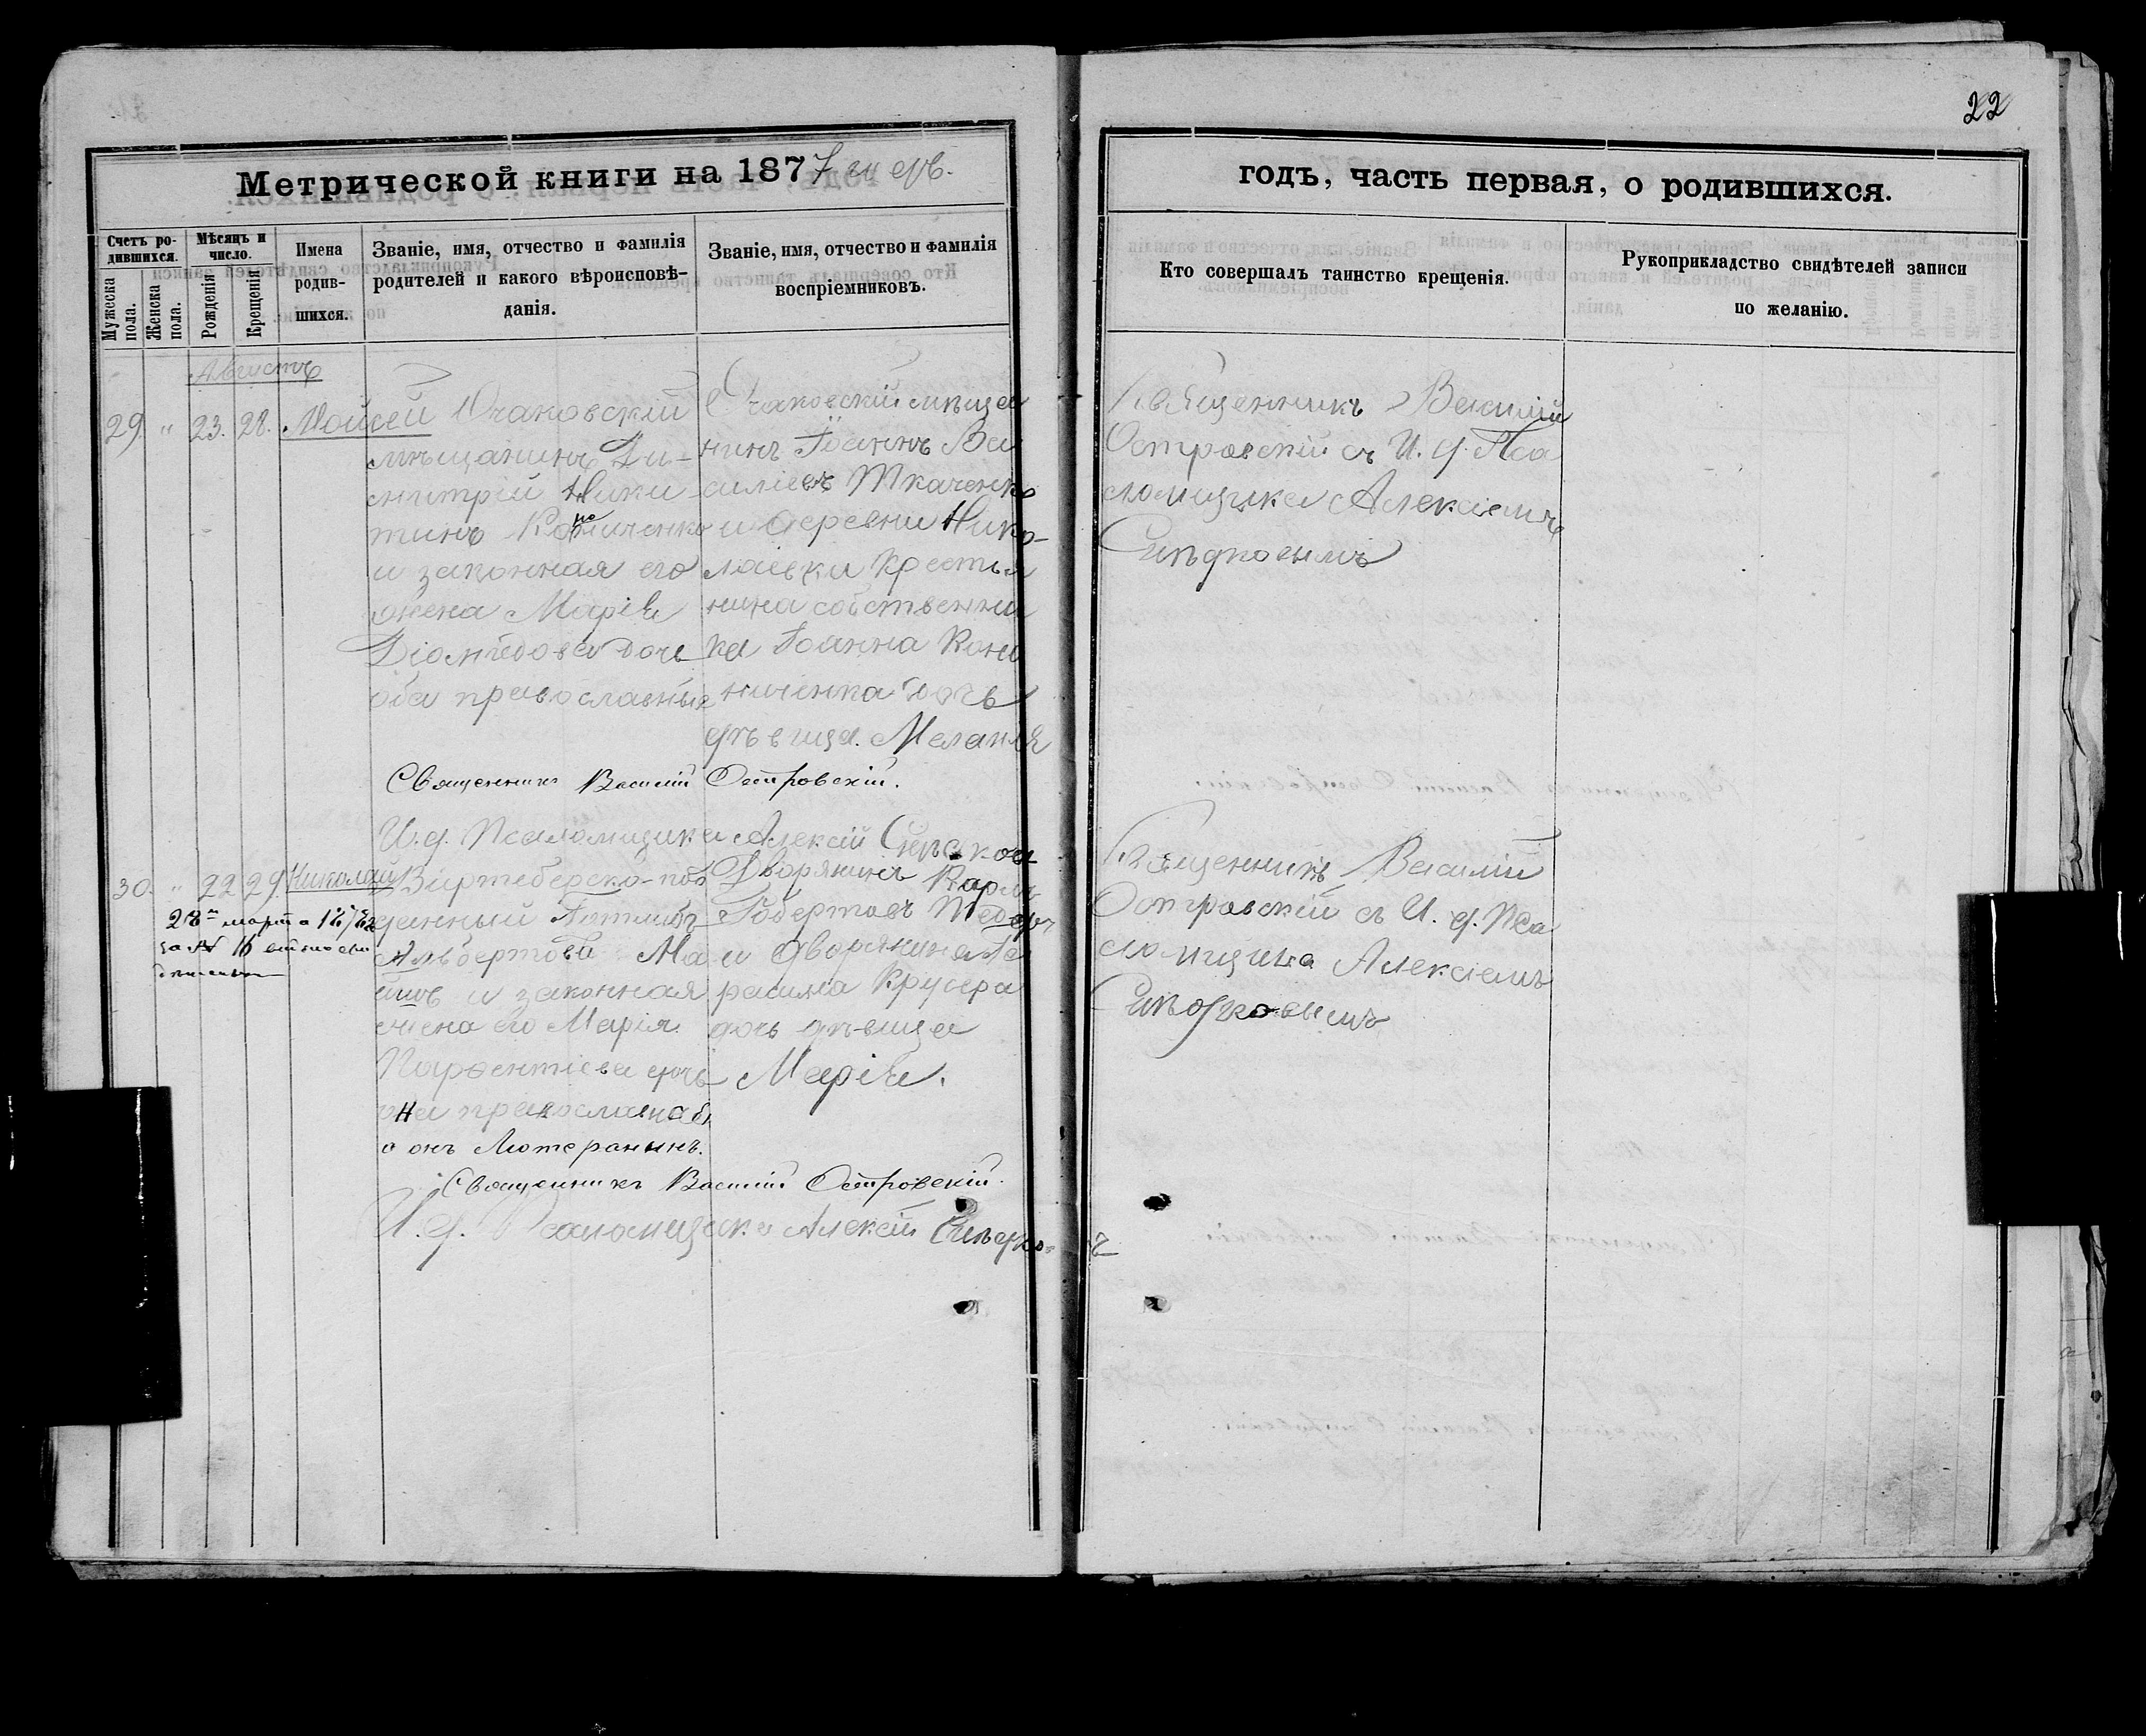 22
Метрической книги на 1877 й
годъ, часть первая, о родившихся.
Счетъ ро-
дившихся.
Мужеска
пола.
Женска
пола.
Мѣсяцъ и
число.
Рожденія
Крещенія
Имена
родив-
шихся.
Званіе, имя, отчество и фамилія
родителей и какого вѣроисповѣ-
данія.
Званіе, имя, отчество и фамилія
воспріемниковъ.
Кто совершалъ таинство крещенія.
Рукоприкладство свидѣтелей записи
по желанію.
Августъ
29. " 23. 28. Моисей
Очаковскій
мѣщанинъ Ди-
митрій Ники-
тинъ
и законная его
жена Марія
Діомидова дочь
оба православные
Очаковскій мѣща
нинъ Іоаннъ Ва
силіевъ Ткаченко
и деревни Нико-
лаевки крестья
нина собственни
ка Іоанна Кони
ниченка дочь
дѣвица Меланія
Священникъ Василій
Островскій съ И. д. Пса
ломщика Алексіемъ
Священникъ Василій Островскій.
И. д. Псаломщика Алексій
30. " 22 29. Николай
28 марта 187
за № 16
Виртебергско-под
данный Готлибъ
Альбертовъ Ма
и законная
жена его Марія
дочь
она православная
а онъ Лютеранинъ.
Дворянинъ Карлъ
Робертовъ
и дворянина Ге
расима Крусера
дочь дѣвица
Марія.
Священникъ Василій
Островскій съ И. д. Пса
ломщика Алексіемъ
Священникъ Василій Островскій.
И. д. Псаломщика Алексій